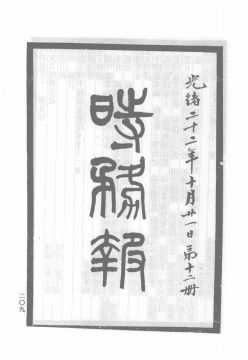 光緒二十二年十月廿一日第十二册
時務報
二〇九